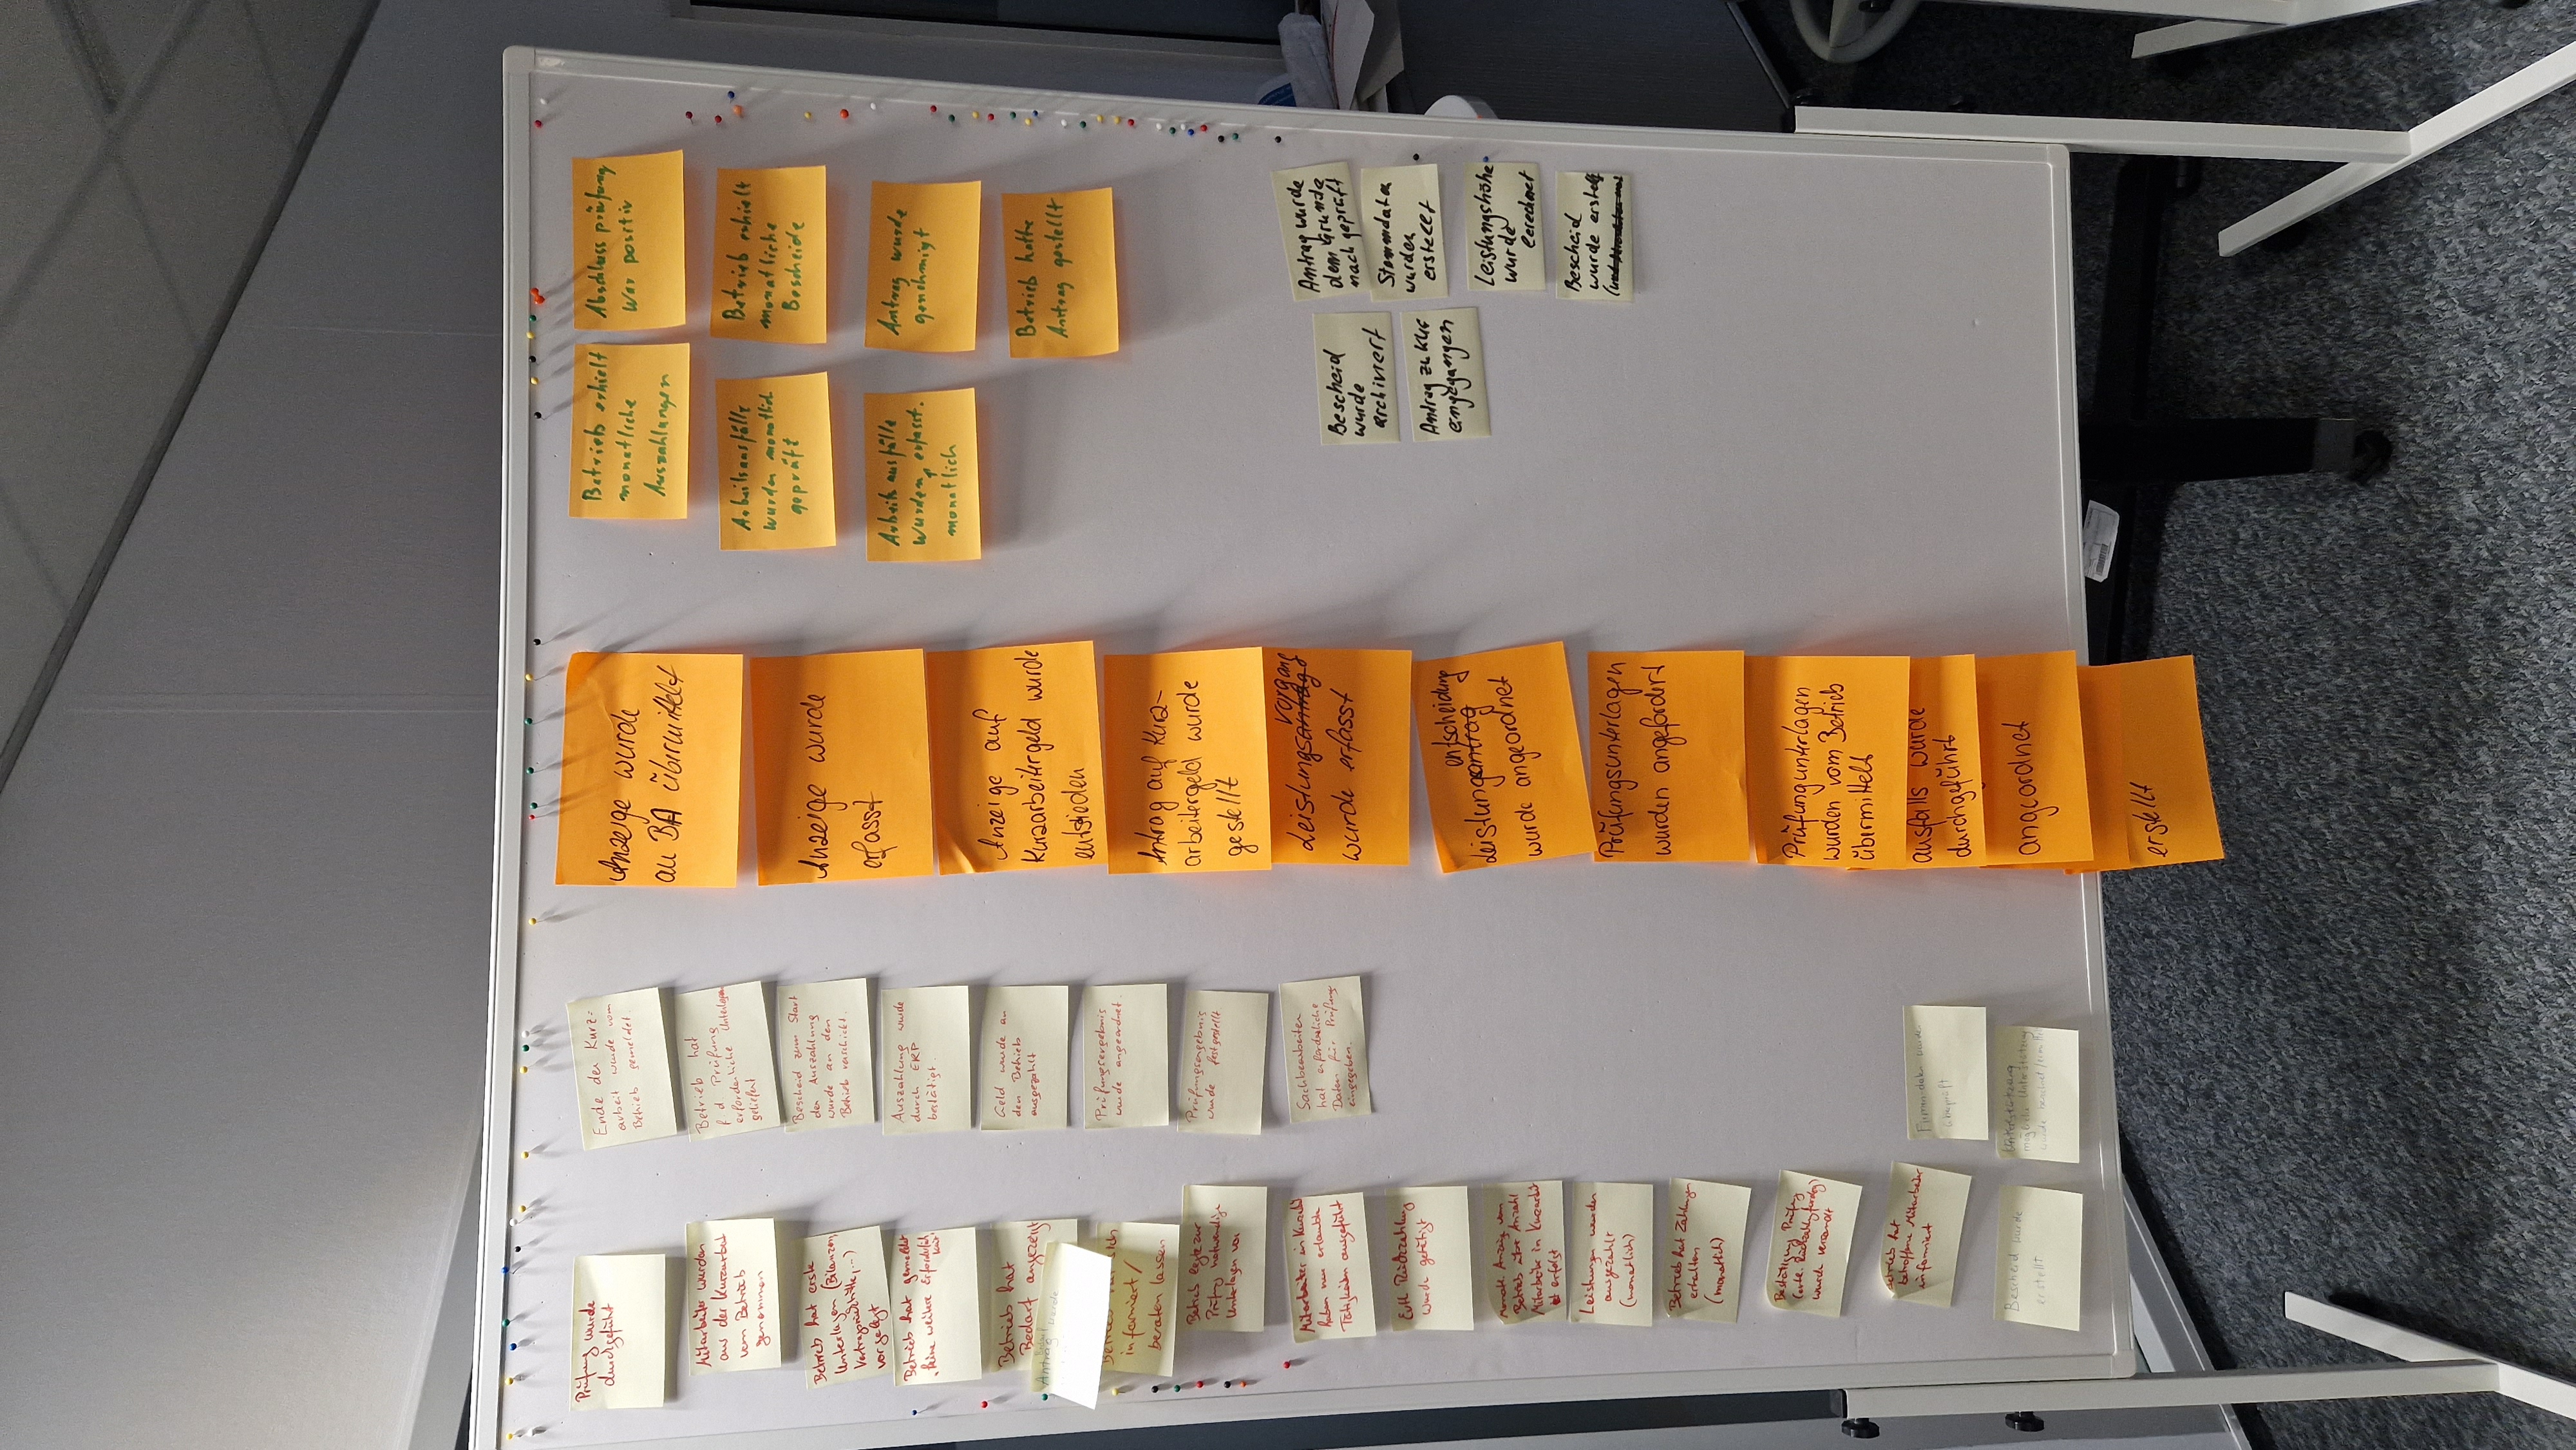 Prüfung wurde
durchgeführt
Mitarbeiter wurden
aus der Kurzarbeit
vom Betrieb
genommen
Betrieb hat erste
Unterlagen (Bilanzen,
vorgelegt
Betrieb hat gemeldet
keine weitere
Betrieb hat
Bedarf angezeigt
Antrag wurde
informiert /
beraten lassen
Betrieb legte zur
Prüfung notwendige
Unterlagen vor
Mitarbeiter in Kurzarbeit
haben nur erlaubte
Tätigkeiten ausgeführt
Evtl. Rückzahlung
wurde getätigt
Monatl. Anzeige vom
Betrieb über Anzahl
Mitarbeiter in Kurzarbeit
ist erfolgt
Leistungen wurden
ausgezahlt
(monatlich)
Betrieb hat Zahlungen
erhalten
(monatlich)
Bestätigung Prüfung
wurde versandt
Betrieb hat
betroffene Mitarbeiter
informiert
Bescheid wurde
erstellt
Ende der Kurz-
arbeit wurde vom
Betrieb gemeldet.
Betrieb hat
f. d. Prüfung
erforderliche Unterlagen
geliefert
Bescheid zum Start
der Auszahlung
wurde an den
Betrieb verschickt.
Auszahlung wurde
durch ERP
bestätigt.
Geld wurde an
den Betrieb
ausgezahlt
Prüfungsergebnis
wurde angeordnet.
Prüfungsergebnis
wurde festgestellt
Sachbearbeiter
hat erforderliche
Daten für Prüfung
eingegeben.
Firmendaten wurden
überprüft
mögliche Unterstützung
wurde
Anzeige wurde
an BA übermittelt
Anzeige wurde
erfasst
Anzeige auf
Kurzarbeitergeld wurde
entschieden
Antrag auf Kurz-
arbeitergeld wurde
gestellt
vorgang
Leistungsantrag
wurde erfasst
entscheidung
Leistungsantrag
wurde angeordnet
Prüfungsunterlagen
wurden angefordert
Prüfungunterlagen
wurden vom Betrieb
übermittelt
ausfalls wurde
durchgeführt
angeordnet
erstellt
Betrieb erhielt
monatliche
Auszahlungen
Abschluss prüfung
war positiv
Arbeitsausfälle
wurden monatlich
geprüft
Betrieb erhielt
monatliche
Bescheide
Arbeits ausfälle
wurden erfasst.
monatlich
Antrag wurde
genehmigt
Betrieb hatte
Antrag gestellt
Bescheid
wurde
archiviert
Antrag wurde
dem Grunde
nach geprüft
Antrag zu KuG
eingegangen
Stammdaten
wurden
erstellt
Leistungshöhe
wurde
berechnet
Bescheid
wurde erstellt